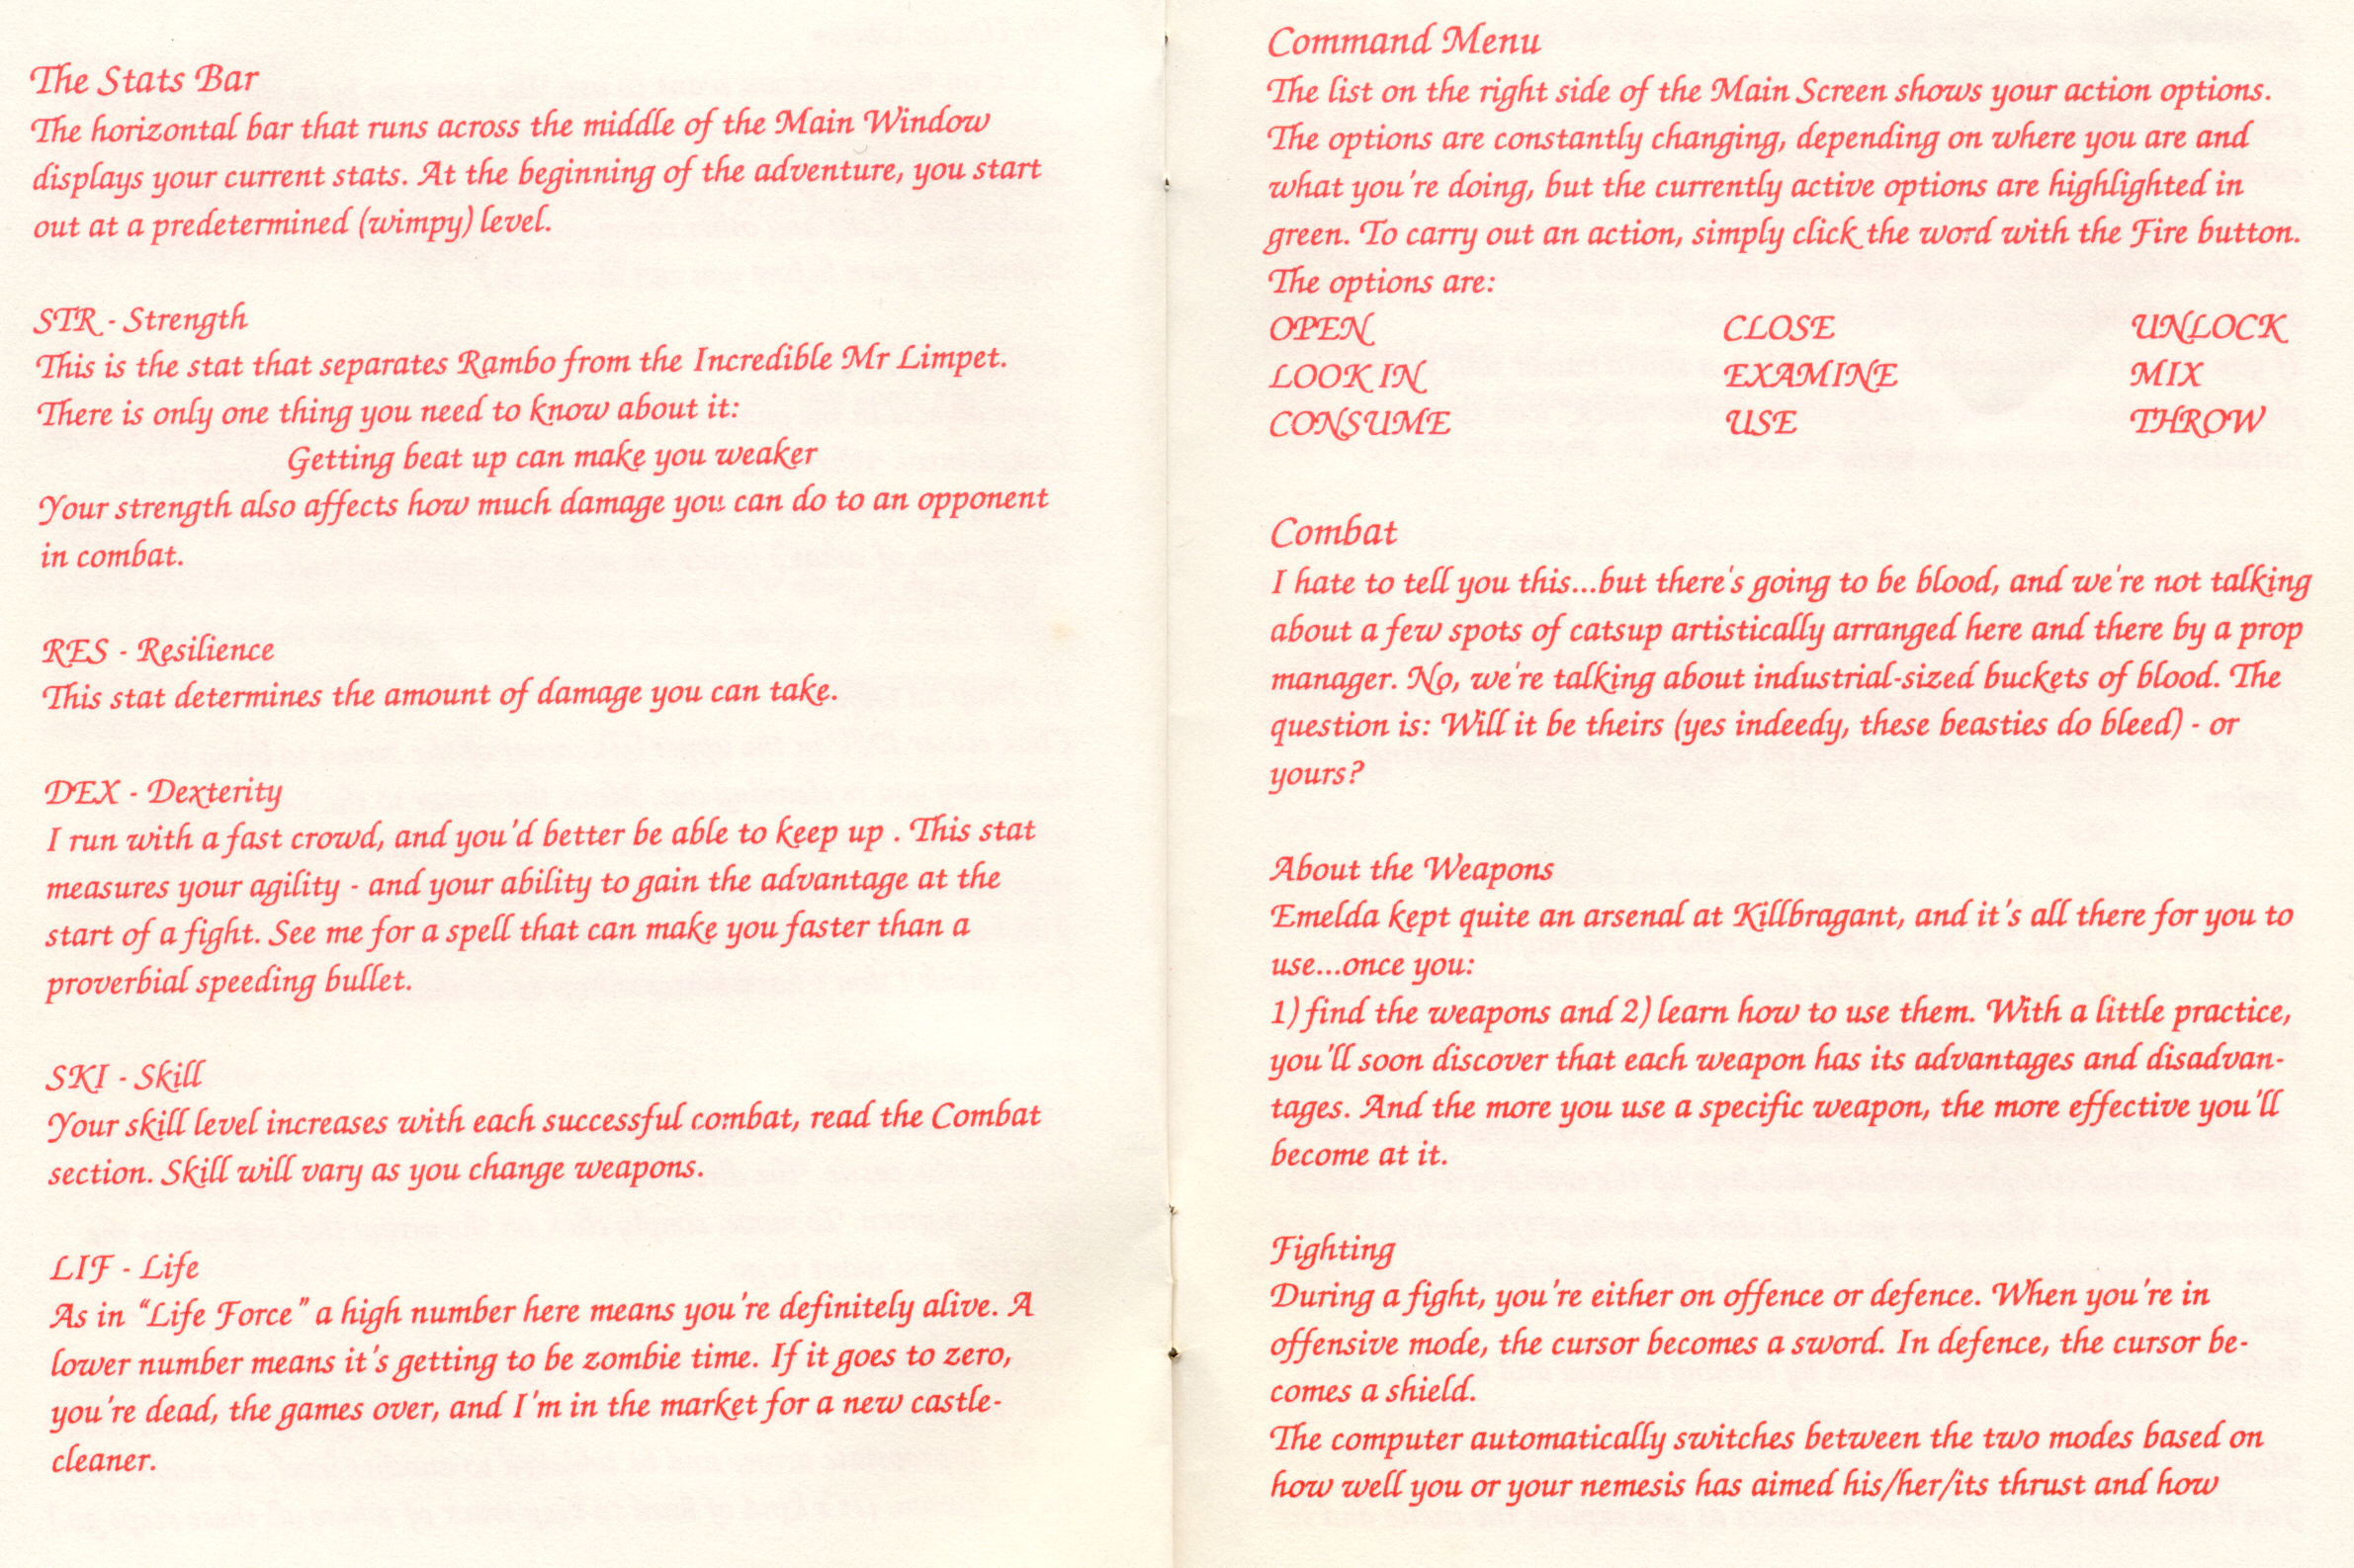 The Stats Bar
The horizontal bar that runs across the middle of the Main Window
displays your current stats. At the beginning of the adventure, you start
out at a predetermined (wimpy) level.
STR - Strength
This is the stat that separates Rambo from the Incredible Mr Limpet.
There is only one thing you need to know about it:
Getting beat up can make you weaker
Your strength also affects how much damage you can do to an opponent
in combat.
RES - Resilience
This stat determines the amount of damage you can take.
DEX - Dexterity
I run with a fast crowd, and you'd better be able to keep up . This stat
measures your agility - and your ability to gain the advantage at the
start of a fight. See me for a spell that can make you faster than a
proverbial speeding bullet.
SKI - Skill
Your skill level increases with each successful combat, read the Combat
section. Skill will vary as you change weapons.
LIF - Life
As in “Life Force” a high number here means you're definitely alive. A
lower number means it's getting to be zombie time. If it goes to zero,
you're dead, the games over, and I'm in the market for a new castle-
cleaner.
Command Menu
The list on the right side of the Main Screen shows your action options.
The options are constantly changing, depending on where you are and
what you're doing, but the currently active options are highlighted in
green. To carry out an action, simply click the word with the Fire button.
The options are:
OPEN CLOSE UNLOCK
LOOK IN EXAMINE MIX
CONSUME USE THROW
Combat
I hate to tell you this...but there's going to be blood, and we're not talking
about a few spots of catsup artistically arranged here and there by a prop
manager. No, we're talking about industrial-sized buckets of blood. The
question is: Will it be theirs (yes indeedy, these beasties do bleed) - or
yours?
About the Weapons
Emelda kept quite an arsenal at Killbragant, and it's all there for you to
use...once you:
1) find the weapons and 2) learn how to use them. With a little practice,
you'll soon discover that each weapon has its advantages and disadvan-
tages. And the more you use a specific weapon, the more effective you'll
become at it.
Fighting
During a fight, you're either on offence or defence. When you're in
offensive mode, the cursor becomes a sword. In defence, the cursor be-
comes a shield.
The computer automatically switches between the two modes based on
how well you or your nemesis has aimed his/her/its thrust and how